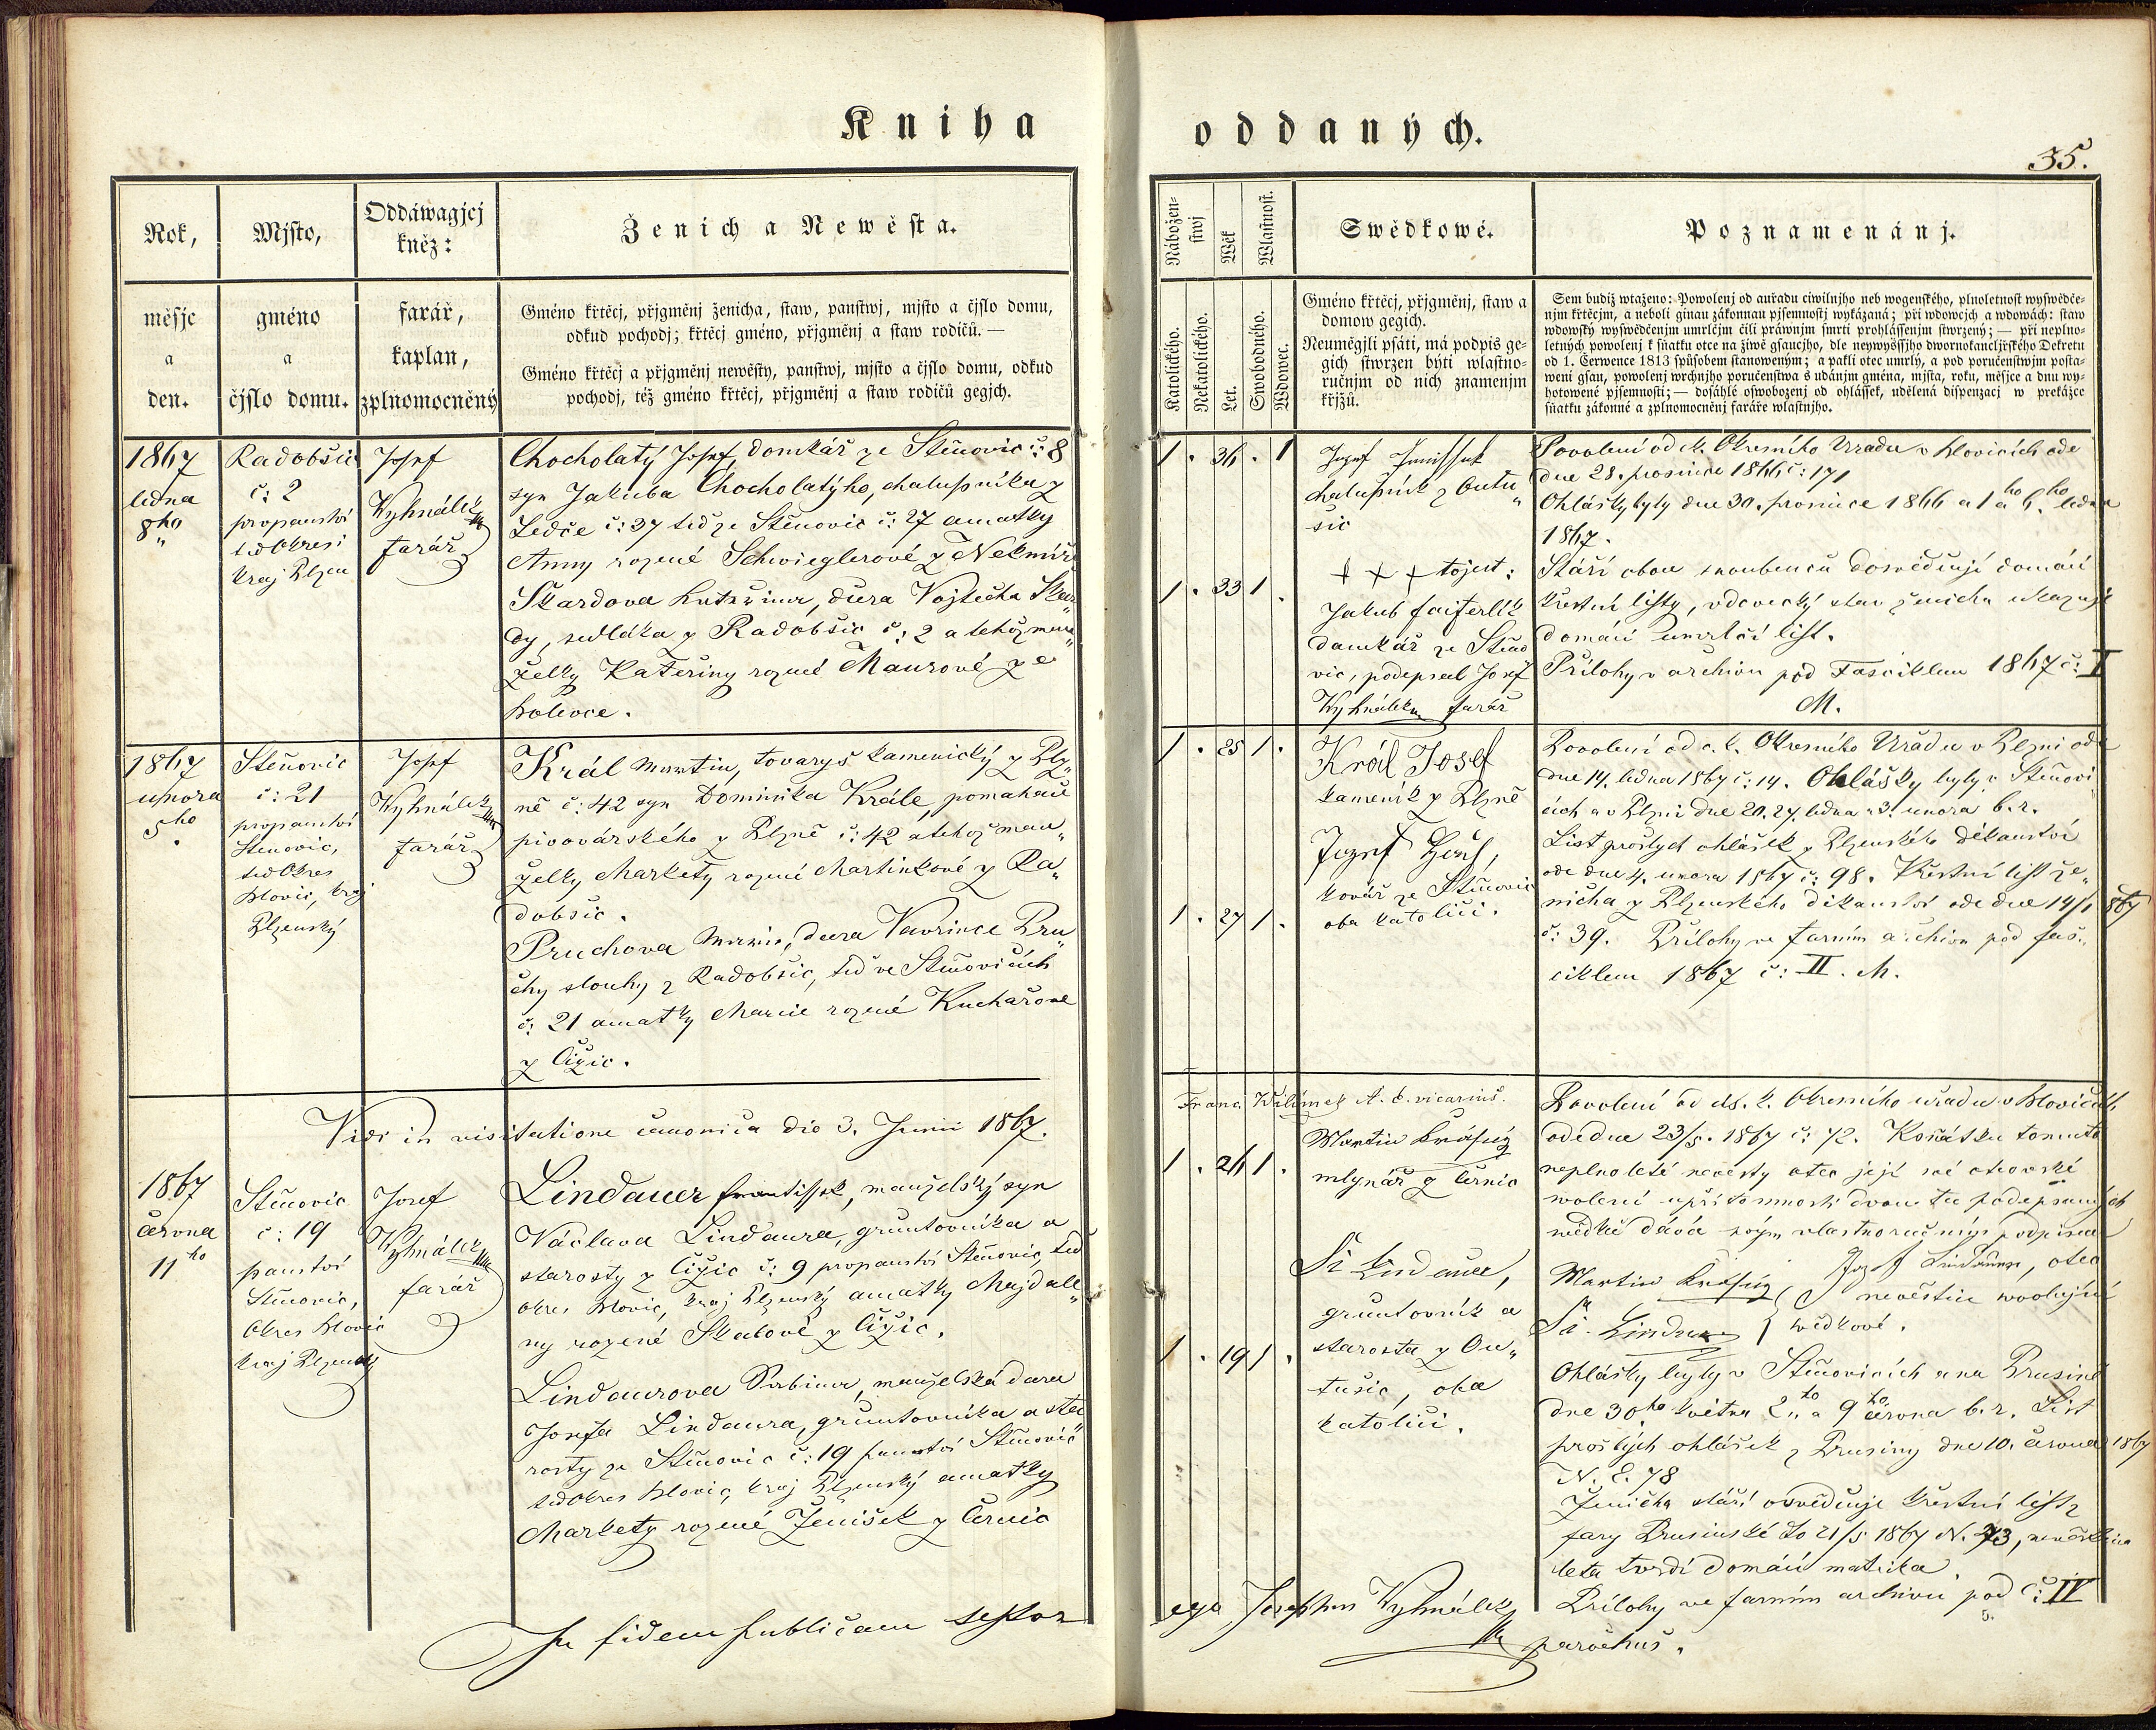 Kniha oddaných.
35.
Rok,
měsjc
a
den.
Mjsto,
gméno
a
čjslo domu.
Oddáwagjcj
kněz:
farář,
kaplan,
zplnomocněný
Ženich a Newěsta.
Gméno křtěcj, přjgměnj ženicha, staw, panstwj, mjsto a čjslo domu,
odkud pochodj; křtěcj gméno, přjgměnj a staw rodičů. —
Gméno křtěcj a přjgměnj newěsty, panstwj, mjsto a čjslo domu, odkud
pochodj, též gméno křtěcj, přjgměnj a staw rodičů gegjch.
Nábožen-
stwj
Katolického.
Nekatolického.
Wěk
Let.
Wlastnost.
Swobodného.
Wdowec.
Swědkowé.
Gméno křtěcj, přjgměnj, staw a
domow gegich.
Neumějgli psáti, má podpis ge-
gich stwrzen býti wlastno-
ručnjm od nich znamenjm
křjžů.
Poznamenánj.
Sem budiž wtaženo: Powolenj od auřadu ciwilnjho neb wogenského, plnoletnost wyswědče-
njm křtěcjm, a neboli ginau zákonnau pjsemnostj wykázaná; při wdowcjch a wdowách: staw
wdowský wyswědčenjm umrlčjm čili práwnjm smrti prohlássenjm stwrzený; — při neplno-
letných powolenj k sňatku otce na žiwě gsaucjho, dle neywyššjho dwornokanceljřského Dekretu
od 1. Července 1813 spůsobem stanoweným; a pakli otec umrlý, a pod poručenstwjm posta-
weni gsau, powolenj wrchnjho poručenstwa s udánjm gména, mjsta, roku, měsjce a dnu wy-
hotowené pjsemnosti; — dosáhlé oswobozenj od ohlášek, udělená dispenzacj w prekážce
sňatku zákonné a zplnomocněnj faráře wlastnjho.
1867
ledna
8ho
Radobšic
č: 2
propanství
teď Okres:
kraj Plzen
Josef
Wyhnálek
farář
Chocholatý Josef, domkář ze Stěnovic č: 8
syn Jakuba Chocholatýho, chalupníka z
Ledče č: 37 teď ze Stěnovic č: 27 a matky
Anny rozené Schwieglerové z Nekmíře
Škardova Kateřina, dcera Vojtěcha Škar„
dy, sedláka z Radobšic č: 2 a tehož man„
želky Kateřiny rozené Maurové ze
Holovce.
1 . 36 . 1
1 . 33 1 .
Jozef
chalupník z Outu„
šic
+ + + tojest:
Jakub Faiferlík
domkář ze Stěno
vic, podepsal Josef
Wyhnálek farář
Povolení od ck. Okresního Uřadu v Blovicích ode
dne 28. prosince 1866 č: 171
Ohlášky byly dne 30. prosince 1866 a 1ho 6ho ledna
1867.
Stáří obou snoubenců dosvědčují domácí
křestní listy, vdovecký stav ženicha ukazuje
domácí umrlčí list.
Přílohy v archivu pod Fasciklem 1867 č: I
M.
1867
unora
5ho
Stěnovic
č: 21
propanství
Stěnovic,
teď Okres
Blovic, kraj
Plzenský
Josef
Wyhnálek
farář
Král Martin, tovaryš kamenický z Plz„
ně č: 42 syn Dominika Krále, pomahače
pivovárského z Plzně č: 42 a tehož man„
želky Markety rozené Martinkové z Ra„
dobšic.
Pruchova Marie, dcera Vavřince Pru„
chy slouhy z Radobšic, teď ve Stěnovicích
č: 21 a matky Marie rozené Kuchařové
z Čižic.
1 . 25 1 .
1 . 27 1 .
Král Josef
kameník z Plzně
Jozef
kovář ze Stěnovic
oba katolíci.
Povolení od c. k. Okresního Uřadu v Plzni ode
dne 14. ledna 1867 č: 14. Ohlášky byly v Stěnovi
cích a v Plzni dne 20. 27. ledna a 3. unora b. r.
List prošlych ohlášek z Plzenského děkanství
ode dne 4. unora 1867 č: 98. Křestní list že„
nicha z Plzenského děkanství ode dne 14/1 867
č: 39. Přílohy ve farním archivu pod fas„
ciklem 1867 č: II. M.
Vidi in visitatione canonica die 3. Junii 1867.
Franc. Wilímek A. b. vicarius.
1867
června
11ho
Stěnovic
č: 19
panství
Stěnovic,
Okres Blovic
kraj Plzenský
Josef
Wyhnálek
farář
Lindauer Frantissek, manželský syn
Václava Lindaura, gruntovníka a
starosty z Čižic č: 9 propanství Stěnovic, teď
okres Blovic, kraj Plzenský a matky Majdale„
ny rozené Skalové z Čižic.
Lindaurova Sabina, manželská dcera
Josefa Lindaura, gruntovníka a sta
rosty ze Stěnovic č: 19 panství Stěnovic
teď Okres Blovic, kraj Plzenský a matky
Markety rozené Jenišek z Černic
1 . 26 1 .
1 . 19 1 .
Martin Krásný
mlynář z Černic
Lindauer,
gruntovník a
starosta z Ou„
tušic, oba
katolíci.
Povolení od ck. k. Okresního uřadu v Blovicích
ode dne 23/5. 1867 č: 72. K sňátku tomuto
neplnoleté nevěsty otec její své otcovské
wolení u přítomnosti dvou tu podepsaných
svědků dává svým vlastnoručným podpisem
Josef Lindauer, otec
nevěstin
Martin Krásný
Lindauer } svědkové.
Ohlášky byly v Stěnovicích a na Prusině
dne 30ho května 2ho a 9ho června b. r. List
prošlých ohlášek z Prusiny dne 10. června 1867
N. E. 78
Ženicha stáří osvědčuje křestní list z
fary Prusinské do 21/5 1867 N. 73, nevěstina
leta tvrdí domácí matrika.
Přílohy ve farním archivu pod č: IV
In fidem publicam testor
ego Josephus Wyhnálek
parochus.